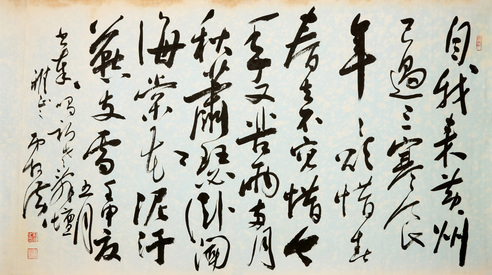 自我来黄州
已過三寒食
年々欲惜春
春去不容惜今
年又苦雨兩月
秋蕭瑟卧聞
海棠花泥汙
燕支雪
五月